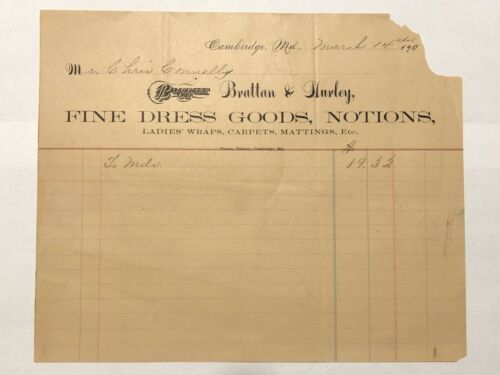 Cambridge, Md. March 14th 190
Mr Chris Connelly
Brattan & Hurley,
FINE DRESS GOODS, NOTIONS,
LADIES' WRAPS, CARPETS, MATTINGS, Etc.
To Mds. 19.33